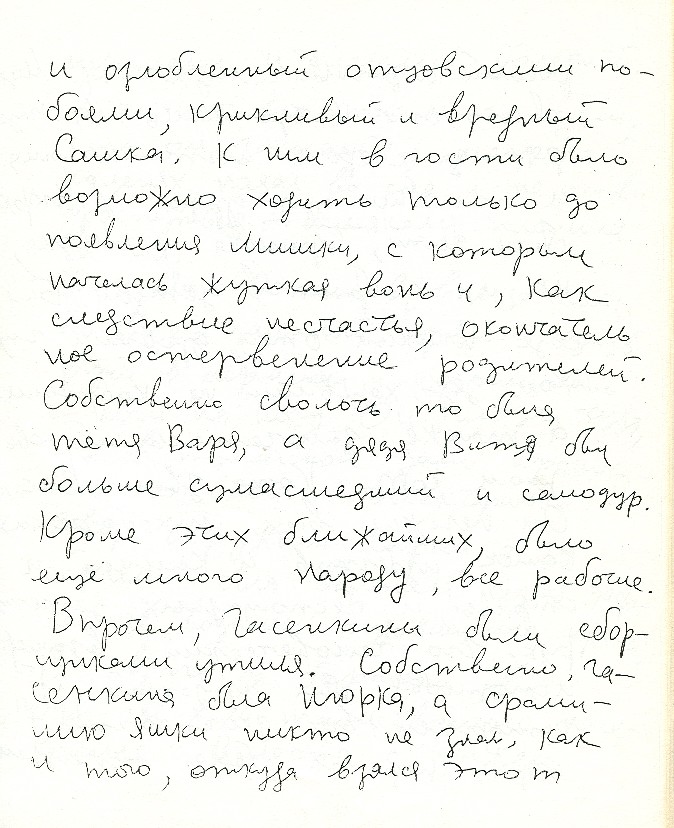 и озлобленный отцовскими по-
боями, крикливый и вредный
Сашка. К ним в гости было
возможно ходить только до
появления Мишки, с которым
началась жуткая вонь и, как
следствие несчастья, окончатель
ное остервенение родителей.
Собственно сволочь то была
тётя Варя, а дядя Витя был
больше сумасшедший и самодур.
Кроме этих ближайших, было
ещё много народу, все рабочие.
Впрочем, Гасенкины были сбор-
щиками утиля. Собственно, Га-
сенкина была Игорка, а фами-
лию Яшки никто не знал, как
и того, откуда взялся этот